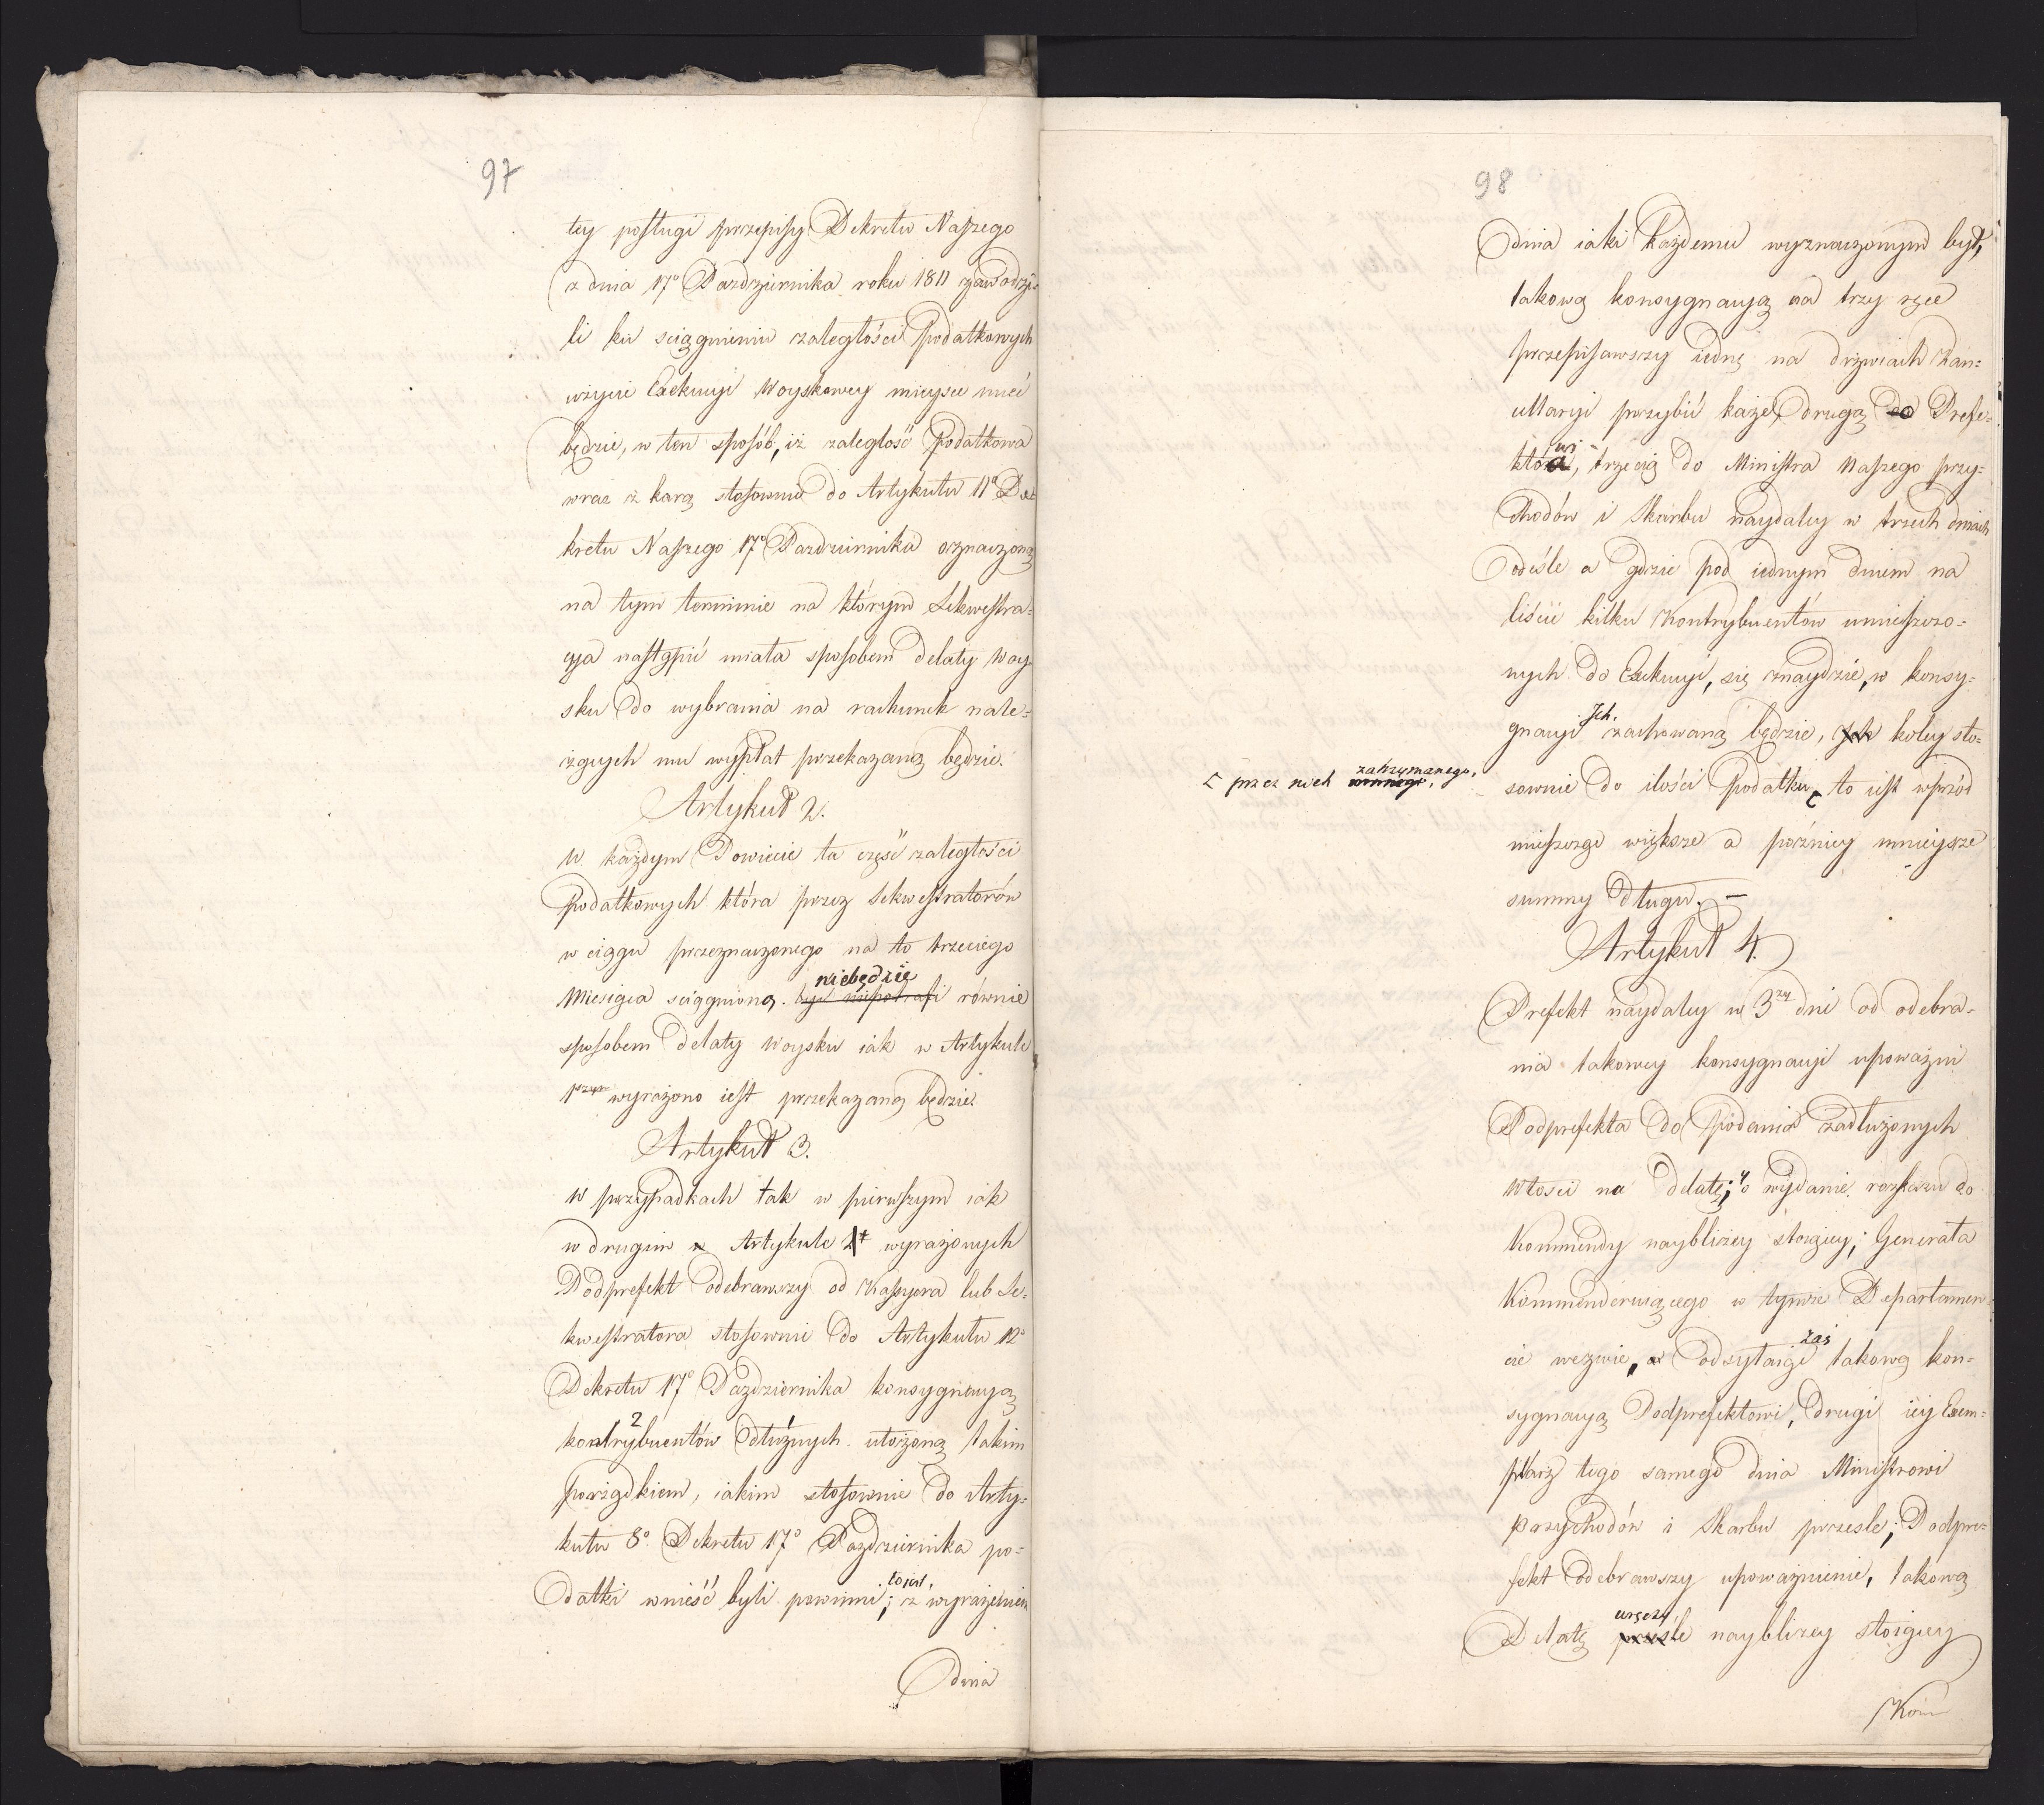 97
tey posługi przepisy Dekretu Naszego
z dnia 17° Pazdziernika roku 1811 zawodzi-
li ku sciągnieniu zaległości Podatkowych
użycie Exekucyi Woyskowey mieysce mieć
będzie, w ten sposób, iż zaległość Podatkowa
wraz z karą stosownie do Artykułu 11° De=
kretu Naszego 17° Pazdziernika oznaczoną
na tym terminie na którym Sekwestra=
cya nastąpić miała sposobem delaty Woy=
sku do wybrania na rachunek nale=
żących mu wypłat przekazaną będzie.
Artykuł 2.
W każdym Powiecie ta część zaległości
Podatkowych która przez Sekwestratorów
w ciągu przeznaczonego na to trzeciego
niebędzie
Miesiąca sciągnioną być niepotrafi równie
sposobem delaty Woysku iak w Artykule
1szym wyrażono iest przekazaną będzie.
Artykuł 3.
W przypadkach tak w pierwszym iak
w drugim Artykule wyrażonych
Podprefekt odebrawszy od Kassyera lub Se=
kwestratora stosownie do Artykułu 12°
Dekretu 17° Pazdziernika konsygnacyą
2 1
kontrybuentów dłużnych ułożoną takim
porządkiem, iakim stosownie do Arty=
kułu 8° Dekretu 17° Pazdziernika po=
to iest,
datki wnieść byli powinni; z wyrażeniem
dnia
98
dnia iaki każdemu wyznaczonym był,
takową konsygnacyą na trzy ręce
przepisawszy iednę na drzwiach Kan=
cellaryi przybić każe, drugą do Prefe=
wi
kta, trzecią do Ministra Naszego przy=
chodów i Skarbu naydaley w trzech dniach
odeśle a gdzie pod iednym dniem na
liście kilku Kontrybuentów umieszczo=
nych do Exekucyi, się znaydzie, w konsy=
Ich.
gnacyi zachowaną będzie, Ich koley sto=
zatrzymanego,
[ przez nich winnego,
sownie do ilości Podatku [ to iest wprzód
mieszcząc większe a pożniey mnieysze
summy długu. –
Artykuł 4.
Prefekt naydaley w 3zy dni od odebra=
nia takowey konsygnacyi upoważni
Podprefekta do podania zadłużonych
Włości na delatę; y o wydanie rozkazu do
Kommendy naybliżey stoiącey; Generała
Kommenderuiącego w tymże Departamen=
zaś
cie wezwie, a odsyłaiąc takową kon=
sygnacyą Podprefektowi, drugi iey Exem=
plarz tego samego dnia Ministrowi
Przychodów i Skarbu prześle; Podpre=
fekt odebrawszy upoważnienie, takową
wręczy
Delatę prześle naybliżey stoiącey
Kom